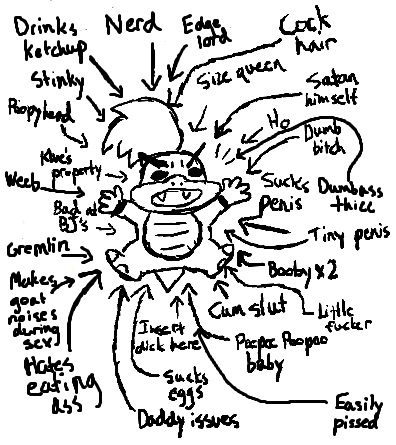 Drinks
ketchup
Nerd
Edge
lord
Cock
hair
Stinky
Size queen
Satan
himself
Poopyhead
Ho
Dumb
bitch
property
Weeb
Bad at
BJ's
Sucks
penis
Dumbass
thicc
Gremlin
Tiny penis
Makes
goat
noises
during
sex
Booby x2
Cum slut
Little
fucker
Insert
dick here
Hates
eating
ass
Sucks
eggs
Peepee Poopoo
baby
Daddy issues
Easily
pissed